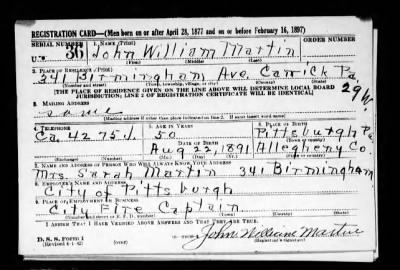 REGISTRATION CARD—(Men born on or after April 28, 1877 and on or before February 16, 1897)
SERIAL NUMBER 1. NAME (Print) ORDER NUMBER
U 36 John William Martin
(First) (Middle) (Last)
2. PLACE OF RESIDENCE (Print)
341 Birmingham Ave Carrick Pa
(Number and street) (Town, township, village, or city) (County) (State)
[THE PLACE OF RESIDENCE GIVEN ON THE LINE ABOVE WILL DETERMINE LOCAL BOARD
JURISDICTION; LINE 2 OF REGISTRATION CERTIFICATE WILL BE IDENTICAL]
29 W.
3. MAILING ADDRESS
same
[Mailing address if other than place indicated on line 2. If same insert word same]
4. TELEPHONE 5. AGE IN YEARS 6. PLACE OF BIRTH
Ca. 4275 J. 50 Pittsburgh Pa
DATE OF BIRTH (Town or county)
Aug 22, 1891 Allegheny Co.
(Exchange) (Number) (Mo.) (Day) (Yr.) (State or country)
7. NAME AND ADDRESS OF PERSON WHO WILL ALWAYS KNOW YOUR ADDRESS
Mrs. Sarah Martin 341 Birmingham
8. EMPLOYER'S NAME AND ADDRESS
City of Pittsburgh
9. PLACE OF EMPLOYMENT OR BUSINESS
City Fire Captain
(Number and street or R. F. D. number) (Town) (County) (State)
I AFFIRM THAT I HAVE VERIFIED ABOVE ANSWERS AND THAT THEY ARE TRUE.
D. S. S. Form 1
(Revised 4-1-42) (over)
John William Martin
(Registrant's signature)